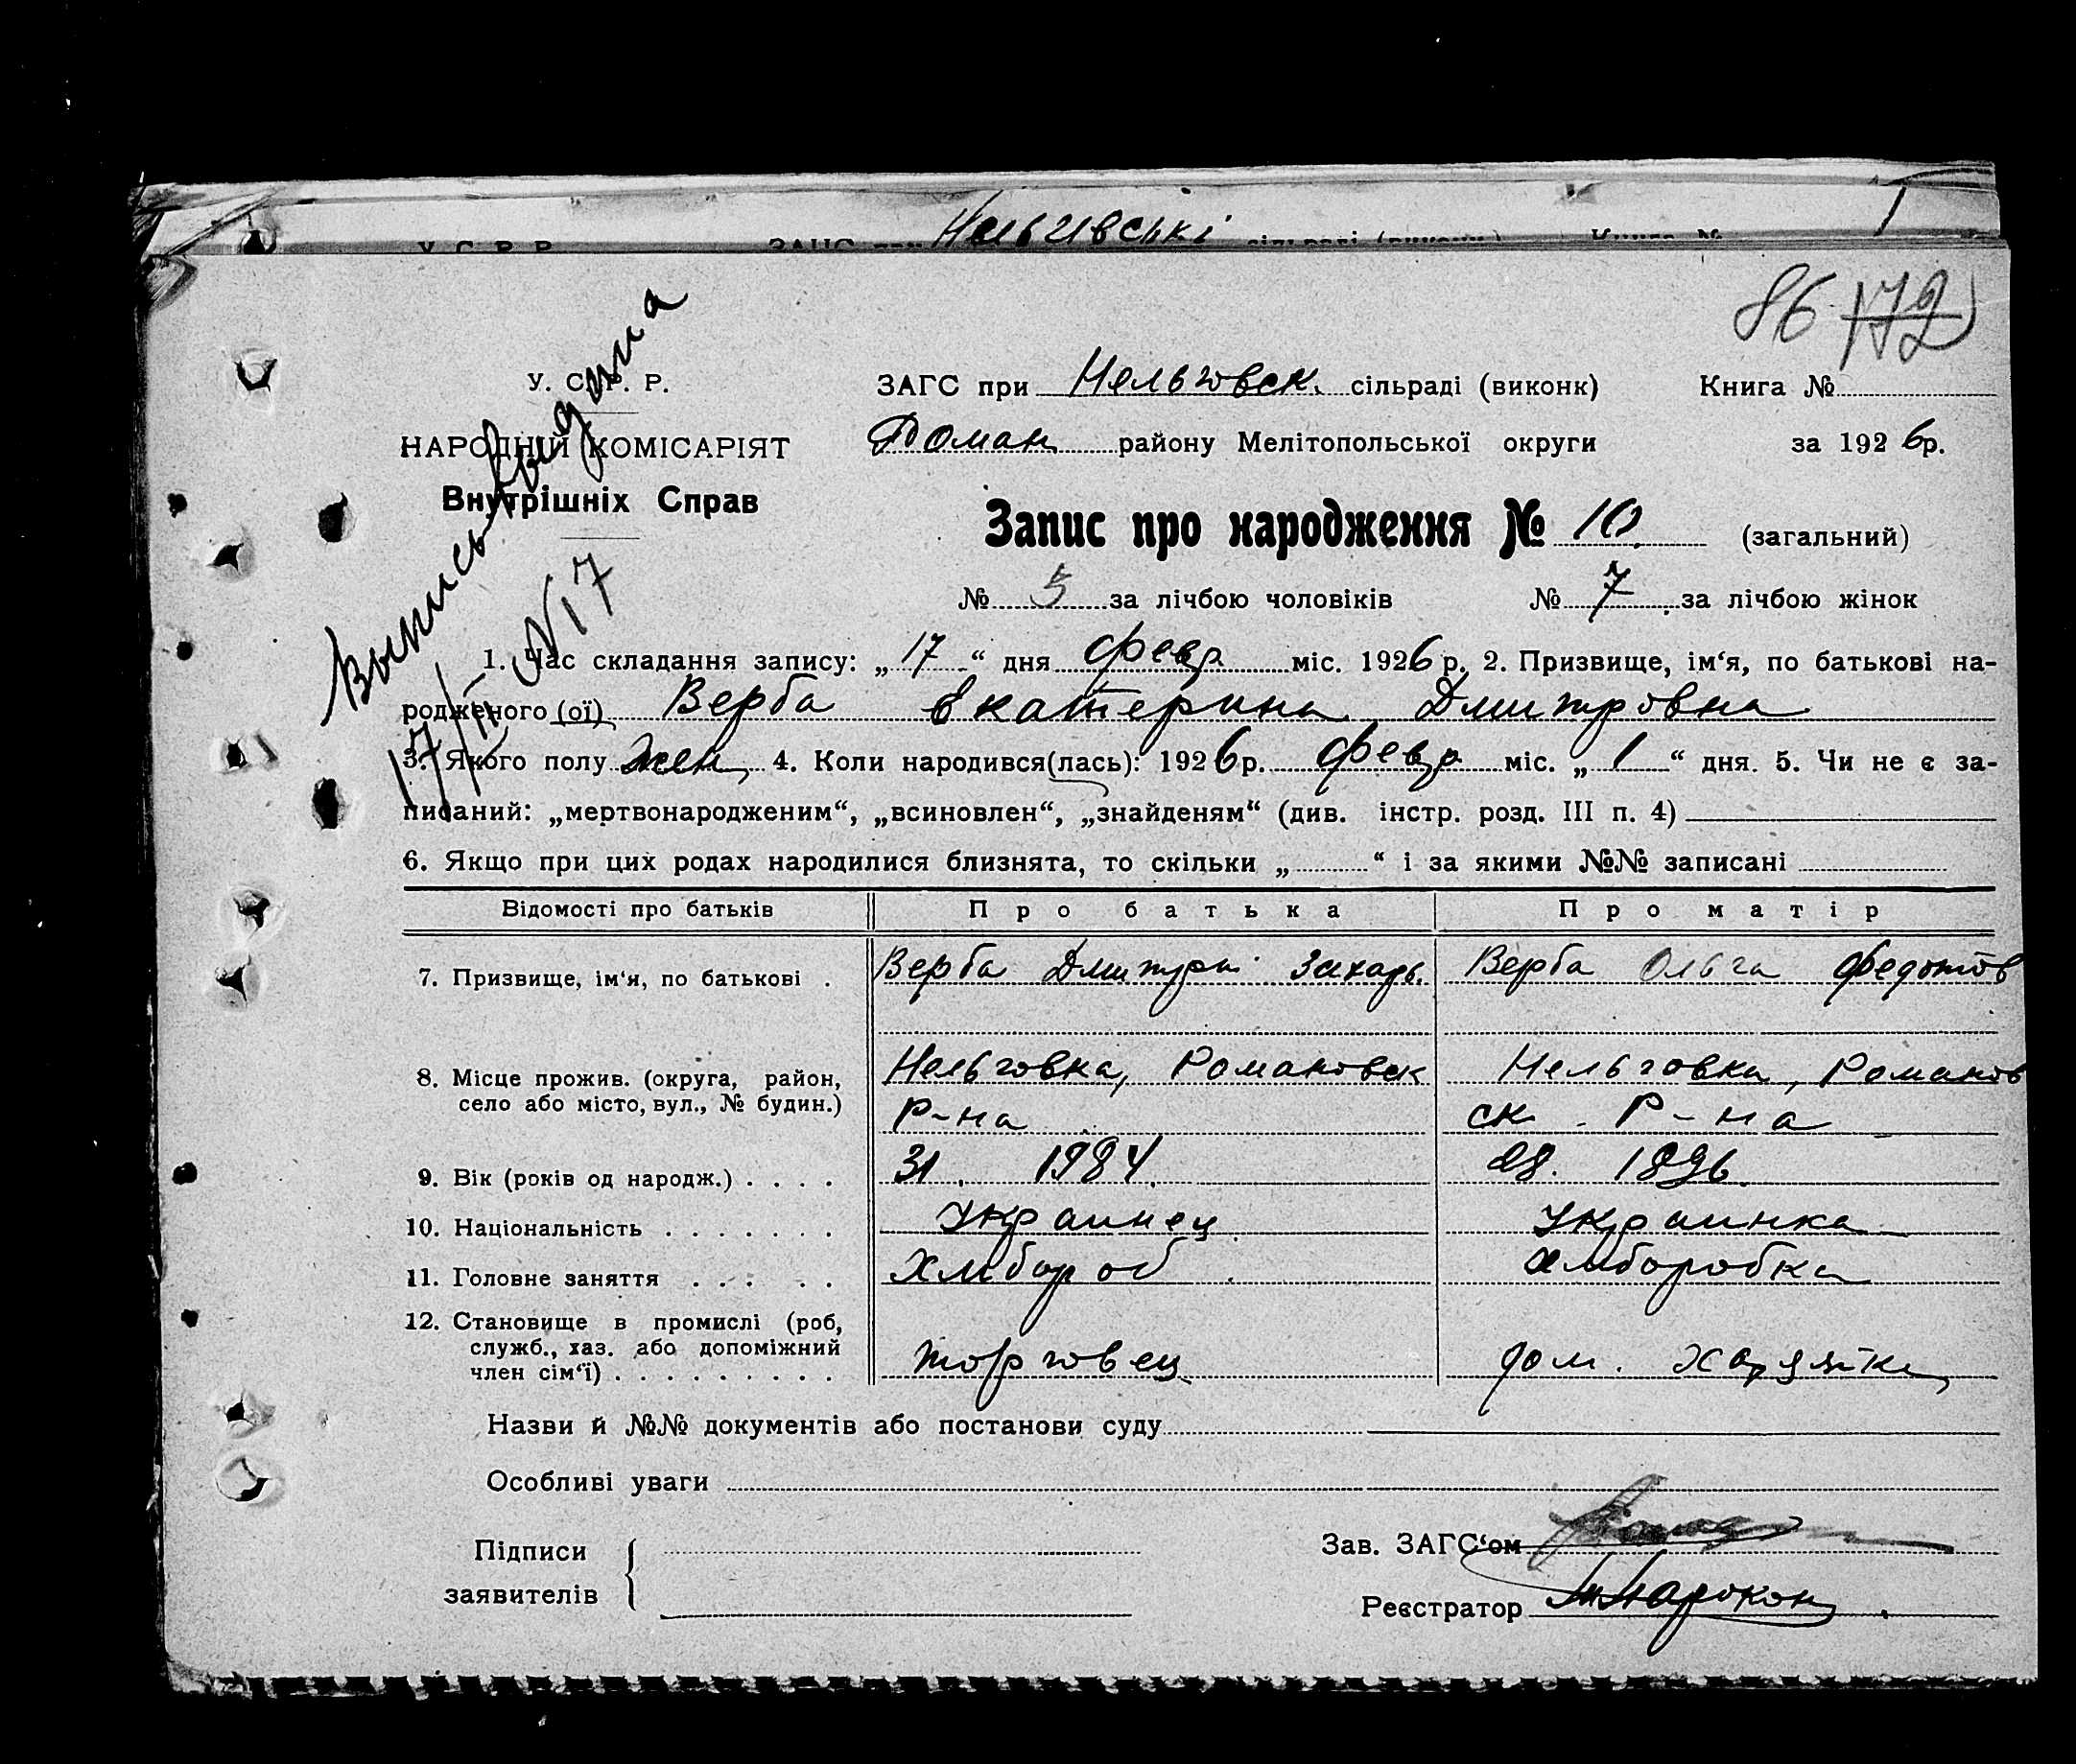 Нельгивські
У. С. Р. Р. ЗАГС при сільраді (виконк) Книга № 1
86 172
Выпись выдана
17/II N 17
У. С. Р. Р. ЗАГС при Нельговск. сільраді (виконк) Книга №
НАРОДНІЙ КОМІСАРІЯТ Роман району Мелітопольської округи за 1926р.
Внутрішніх Справ
Запис про народження № 10. (загальний)
№ 5 за лічбою чоловіків № 7 за лічбою жінок
1. Час складання запису: „17“ дня февр міс. 1926 р. 2. Призвище, ім‘я, по батькові на-
родженого (ої) Верба Екатерина Дмитровна
3. Якого полу жен, 4. Коли народився(лась): 1926р. февр міс. „1“ дня. 5. Чи не є за-
писаний: „мертвонародженим“, „всиновлен“, „знайденям“ (див. інстр. розд. III п. 4)
6. Якщо при цих родах народилися близнята, то скільки „ “ і за якими №№ записані
Відомості про батьків Про батька Про матір
7. Призвище, ім‘я, по батькові . Верба Дмитри Захарь. Верба Ольга Федотов
8. Місце прожив. (округа, район, Нельговка, Романовск Нельговка, Романов
село або місто, вул., № будин.) Р-на ск. Р-на
9. Вік (років од народж.) . . . . 31. 1984. 28. 1896.
10. Національність . . . . . . . Украинец Украинка
11. Головне заняття . . . . . Хлибороб Хлиборобка
12. Становище в промислі (роб,
служб., хаз. або допоміжний торговец дом. хазяйка
член сім‘ї) . . . . . . . . .
Назви й №№ документів або постанови суду
Особливі уваги
Підписи Зав. ЗАГС‘ом
заявителів Реєстратор